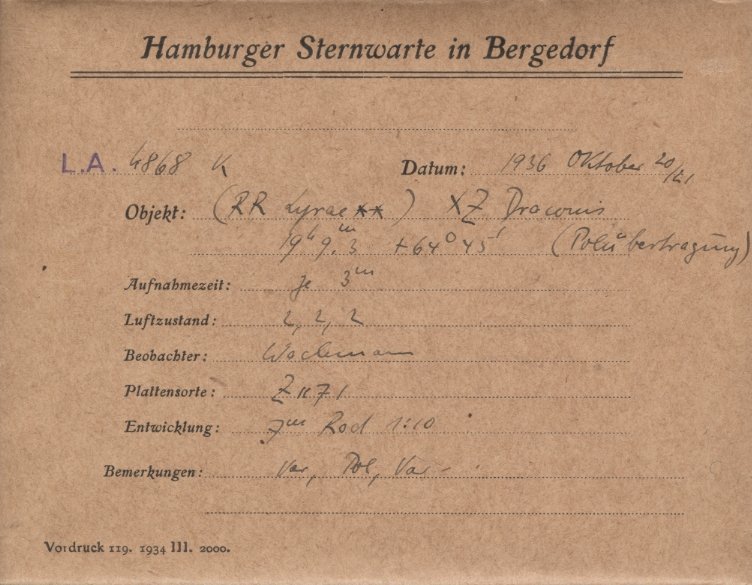 Hamburger Sternwarte in Bergedorf
L.A. 4868 K Datum: 1936 Oktober 20/21
Objekt: (RR Lyrae **) XZ Draconis
19ʰ 9.ᵐ3 +64° 45' (Polübertragung)
Aufnahmezeit: je 3ᵐ
Luftzustand: 2, 2, 2
Beobachter: Wachmann
Plattensorte:
Entwicklung: 7ᵐ Rod 1:10
Bemerkungen: Var, Pol, Var
Vordruck 119. 1934 III. 2000.